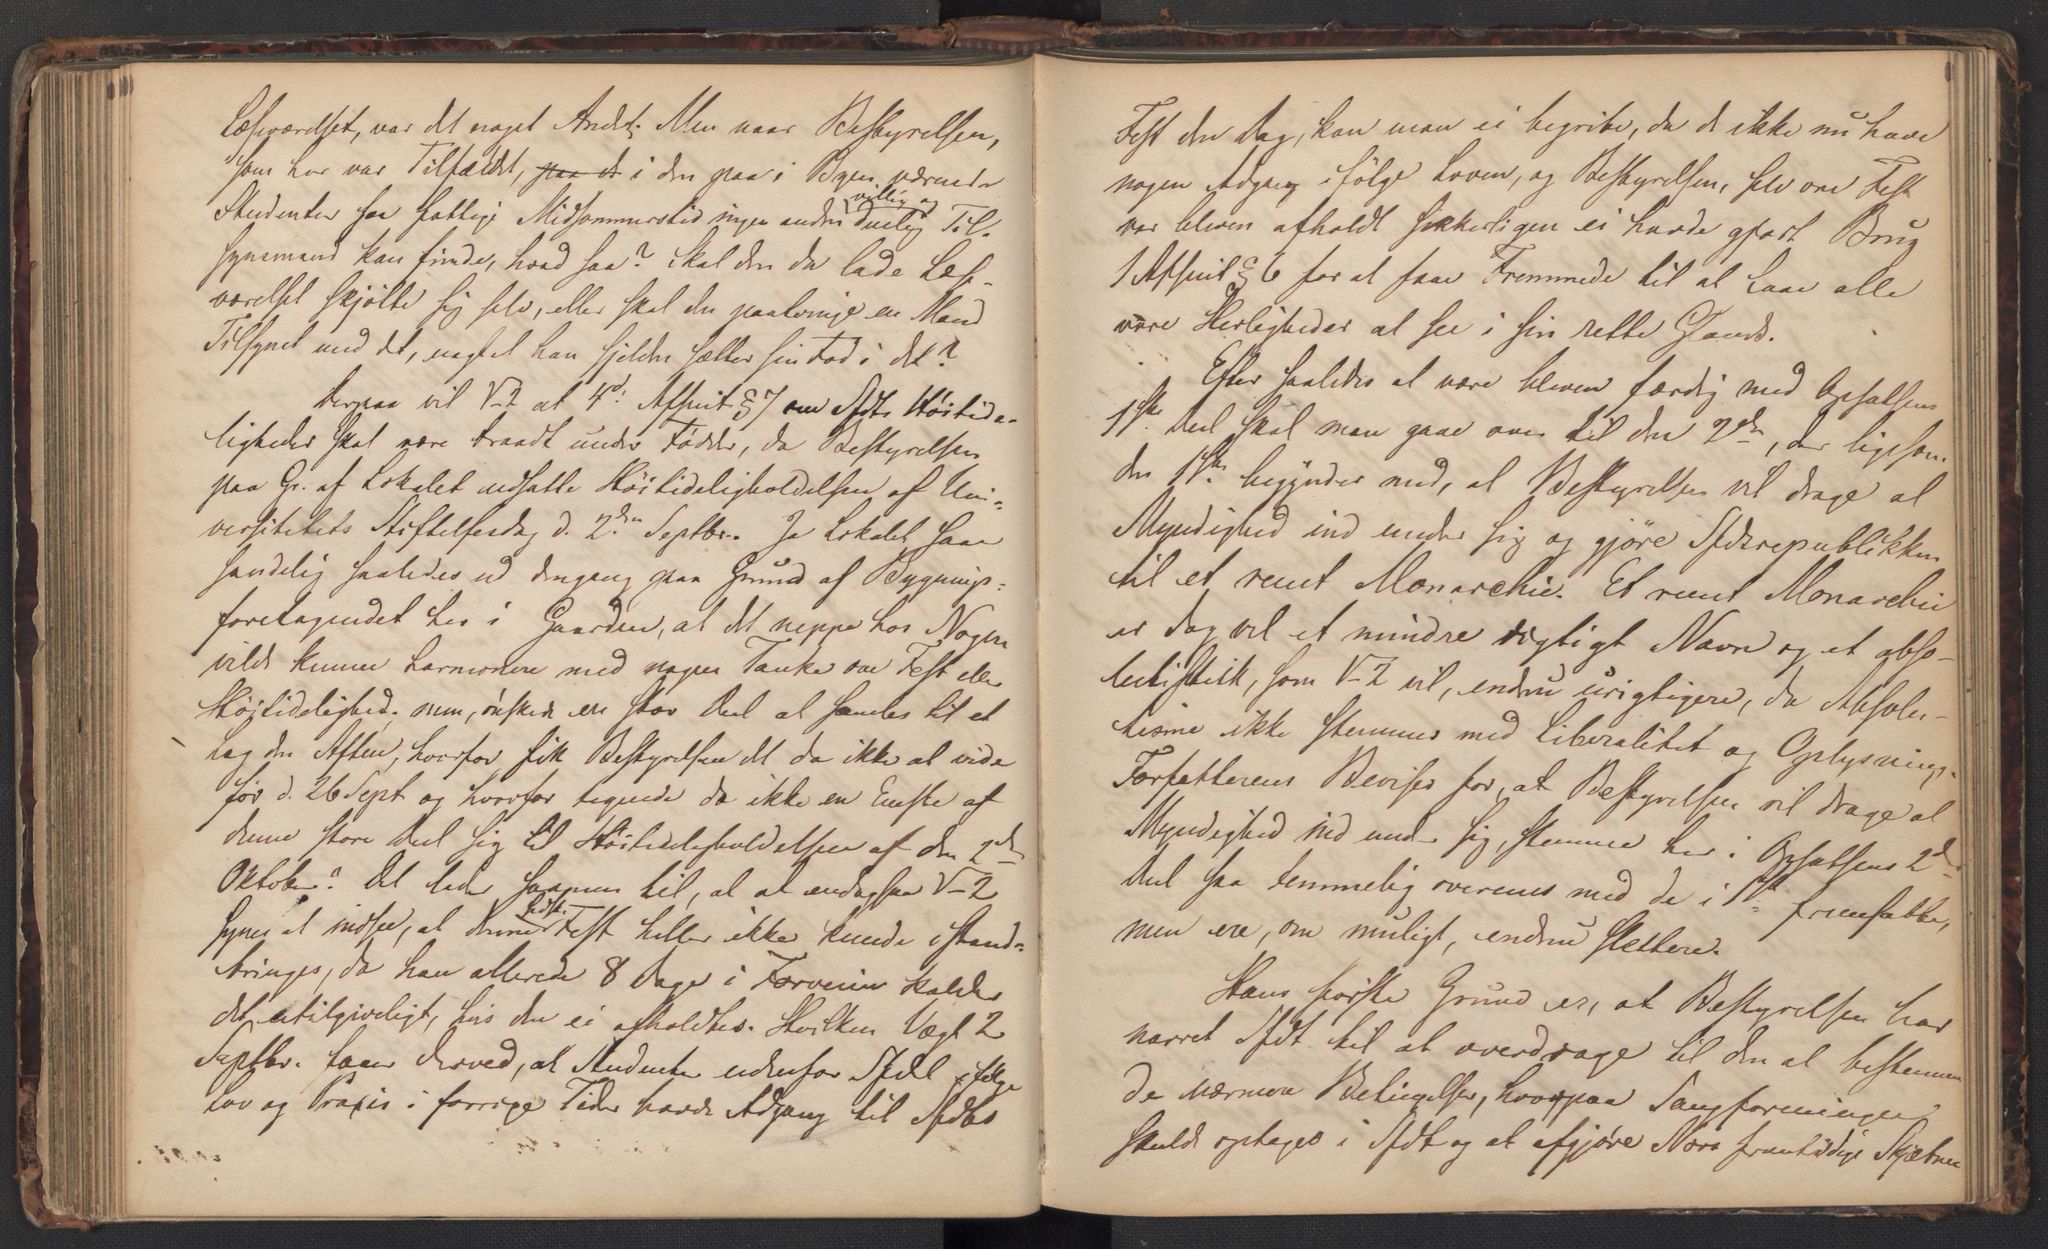 Læseværelset, var det noget Andet. Men naar Bestyrelsen,
som her var Tilfældet, paa et i den paa i Byen værende
Studenter saa fattige Midsommerstid ingen anden villig og duelig Til-
synsmand kan finde, hvad saa? skal den da lade Læse-
værelset skjøtte sig selv, eller skal den paatvinge en Mand
Tilsynet med det, uagtet han sjelden sætter sin Fod i det?
Derpaa vil V-2 at 4d. Afsnit § 7 om Sfdts Høitide-
ligheder skal være traadt under Fødder, da Bestyrelsen
paa Gr. af Lokalet udsatte Høitideligholdelsen af Uni-
versitetets Stiftelsesdag d. 2den Septbr. Ja Lokalet saae
sandelig saaledes ud dengang paa Grund af Bygnings-
foretagendet her i Gaarden, at det neppe hos Nogen
vilde kunne harmonere med nogen Tanke om Fest eller
Høitidelighed. men, ønskede en stor Deel at samles til et
Lag den Aften, hvorfor fik Bestyrelsen det da ikke at vide
før d. 26 Sept og hvorfor tegnede da ikke en Eneste af
denne store Deel sig til Høitideligholdelsen af den 2den
Oktober? Det lader saamen til, at at endogsaa V-2
synes at indsee, at denne sidste Fest heller ikke kunde istand-
bringes, da han allerede 8 Dage i Forveien kalder
det utilgiveligt, hvis den ei afholdtes. Hvilken Vægt 2
Septbr. faaer derved, at Studenter udenfor Sfdt ifølge
Lov og Praxis i forrige Tider havde Adgang til Sfdts
Fest den Dag, kan man ei begribe, da de ikke nu have
nogen Adgang ifølge Loven, og Bestyrelsen, selv om Fest
var bleven afholdt sikkerligen ei havde gjort Brug
1 Afsnit § 6 for at faae Fremmede til at Laae alle
vore Herligheder at see i sin rette Glands.
Efter saaledes at være bleven færdig med Opsatsens
1ste Deel skal man gaae over til den 2den, der ligesom
den 1ste begynder med, at Bestyrelsen vil drage al
Myndighed ind under sig og gjøre Sfdsrepublikken
til et reent Monarchie. Et reent Monarchie
er dog vel et mindre rigtigt Navn og et abso-
lutistisk, som V-2 vil, endnu urigtigere, da Absolu-
tisme ikke stemmer med Liberalitet og Oplysning.
Forfatterens Beviser for, at Bestyrelsen vil drage al
Myndighed ind under sig, stemme her i Opsatsens 2den
Deel saa temmelig overens med de i 1ste fremsatte,
men ere, om muligt, endnu slettere.
Hans første Grund er, at Bestyrelsen har
narret Sfdt til at overdrage til den at bestemme
de nærmere Betingelser, hvorpaa Sangforeningen
skulde optages i Sfdt og at afgjøre Nors fremtidige Skjæbne